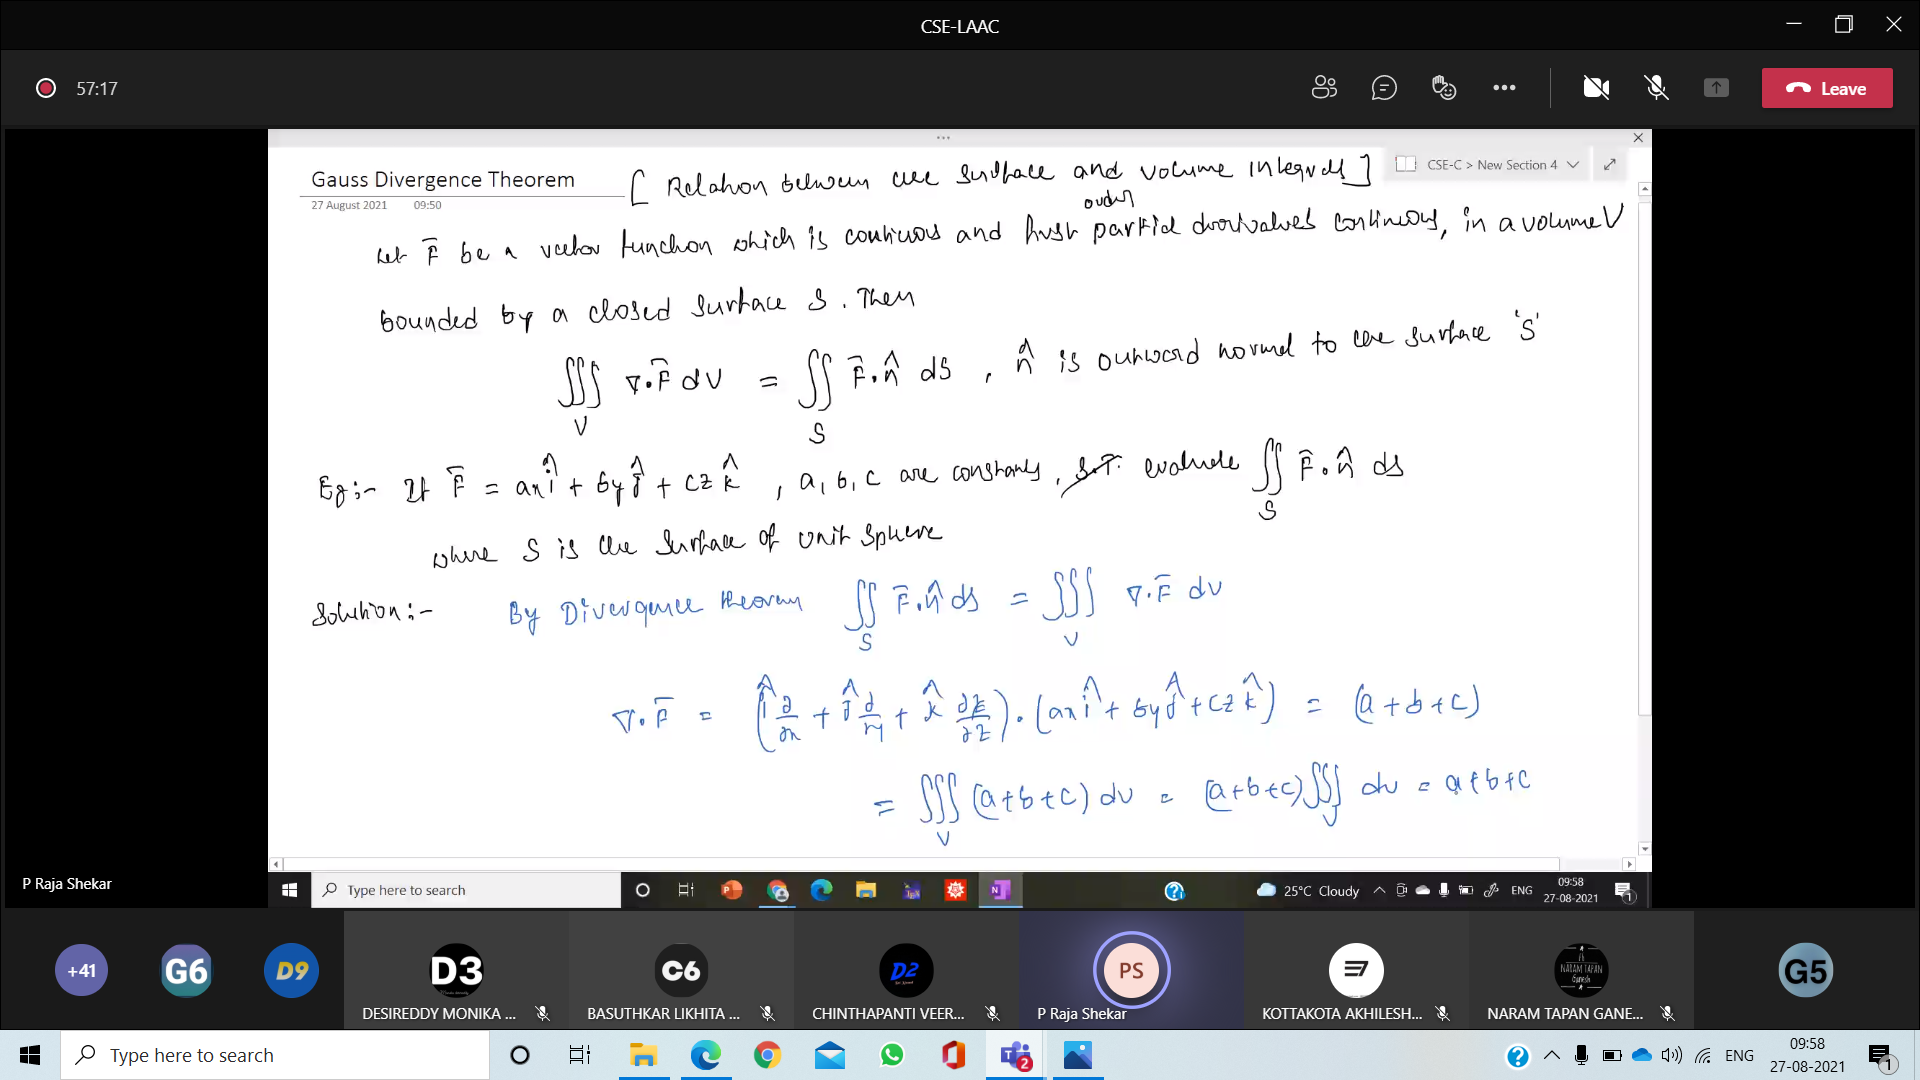 CSE-LAAC
57:17
Leave
Gauss Divergence Theorem [ Relation between the surface and volume integrals ]
CSE-C > New Section 4
27 August 2021 09:50
order
Let F̄ be a vector function which is continuous and first partial derivatives continuous, in a volume V
bounded by a closed surface S. Then
∭_V ∇·F̄ dV = ∬_S F̄·n̂ dS , n̂ is outward normal to the surface 'S'
Eg:- If F̄ = ax î + by ĵ + cz k̂ , a, b, c are constants, S.T. evaluate ∬_S F̄·n̂ ds
where S is the surface of unit sphere
Solution:- By Divergence theorem ∬_S F̄·n̂ ds = ∭_V ∇·F̄ dv
∇·F̄ = (î ∂/∂x + ĵ ∂/∂y + k̂ ∂/∂z)·(ax î + by ĵ + cz k̂) = (a+b+c)
= ∭_V (a+b+c) dv = (a+b+c) ∭_V dv = a+b+c
P Raja Shekar
Type here to search
25°C Cloudy
ENG
09:58
27-08-2021
1
+41
G6
D9
D3
C6
D2
PS
NARAM TAPAN
Ganesh
G5
DESIREDDY MONIKA ...
BASUTHKAR LIKHITA ...
CHINTHAPANTI VEER...
P Raja Shekar
KOTTAKOTA AKHILESH...
NARAM TAPAN GANE...
Type here to search
2
ENG
09:58
27-08-2021
1